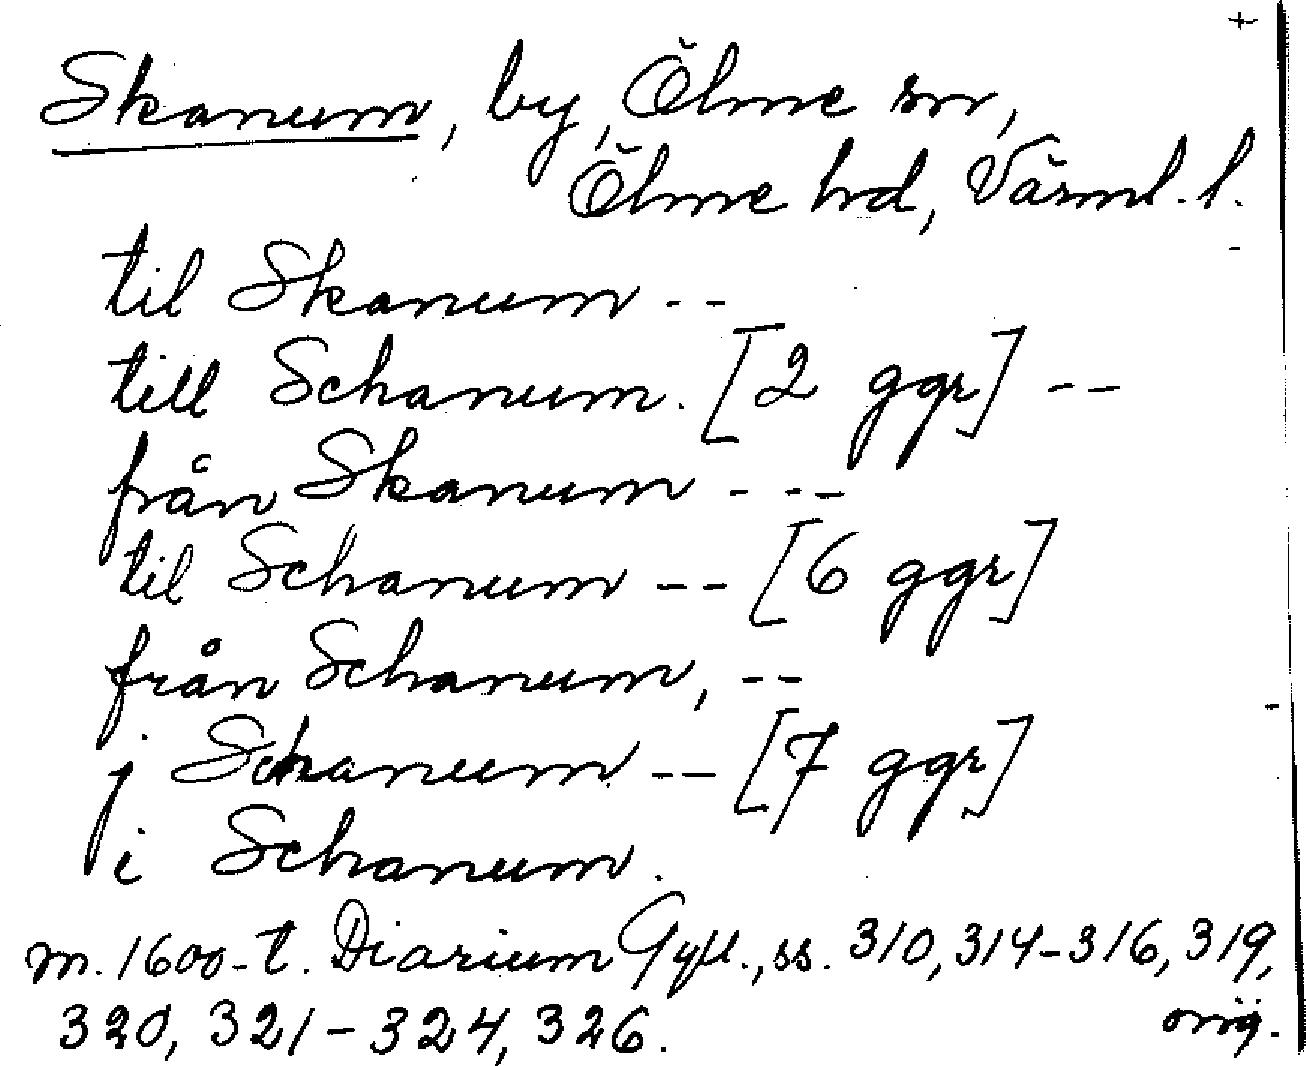 +
Skanum, by, Ölme sn,
Ölme hd, Värml. l.
til Skanum --
till Schanum. [2 ggr] --
från Skanum - --
til Schanum -- [6 ggr]
från Schanum, --
j Schanum -- [7 ggr]
i Schanum.
m. 1600-t. Diarium Gyll., ss. 310, 314-316, 319,
320, 321-324, 326.
orig.